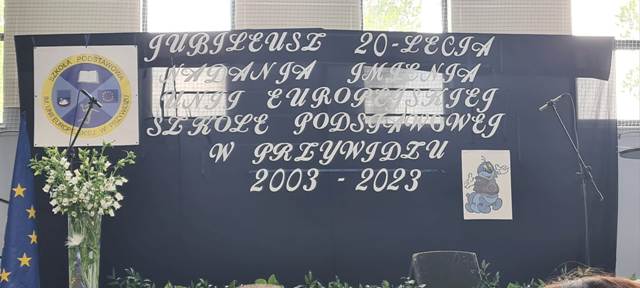 JUBILEUSZ 20-LECIA
NADANIA IMIENIA
UNII EUROPEJSKIEJ
SZKOLE PODSTAWOWEJ
W PRZYWIDZU
2003 - 2023
SZKOŁA PODSTAWOWA
IM. UNII EUROPEJSKIEJ W PRZYWIDZU